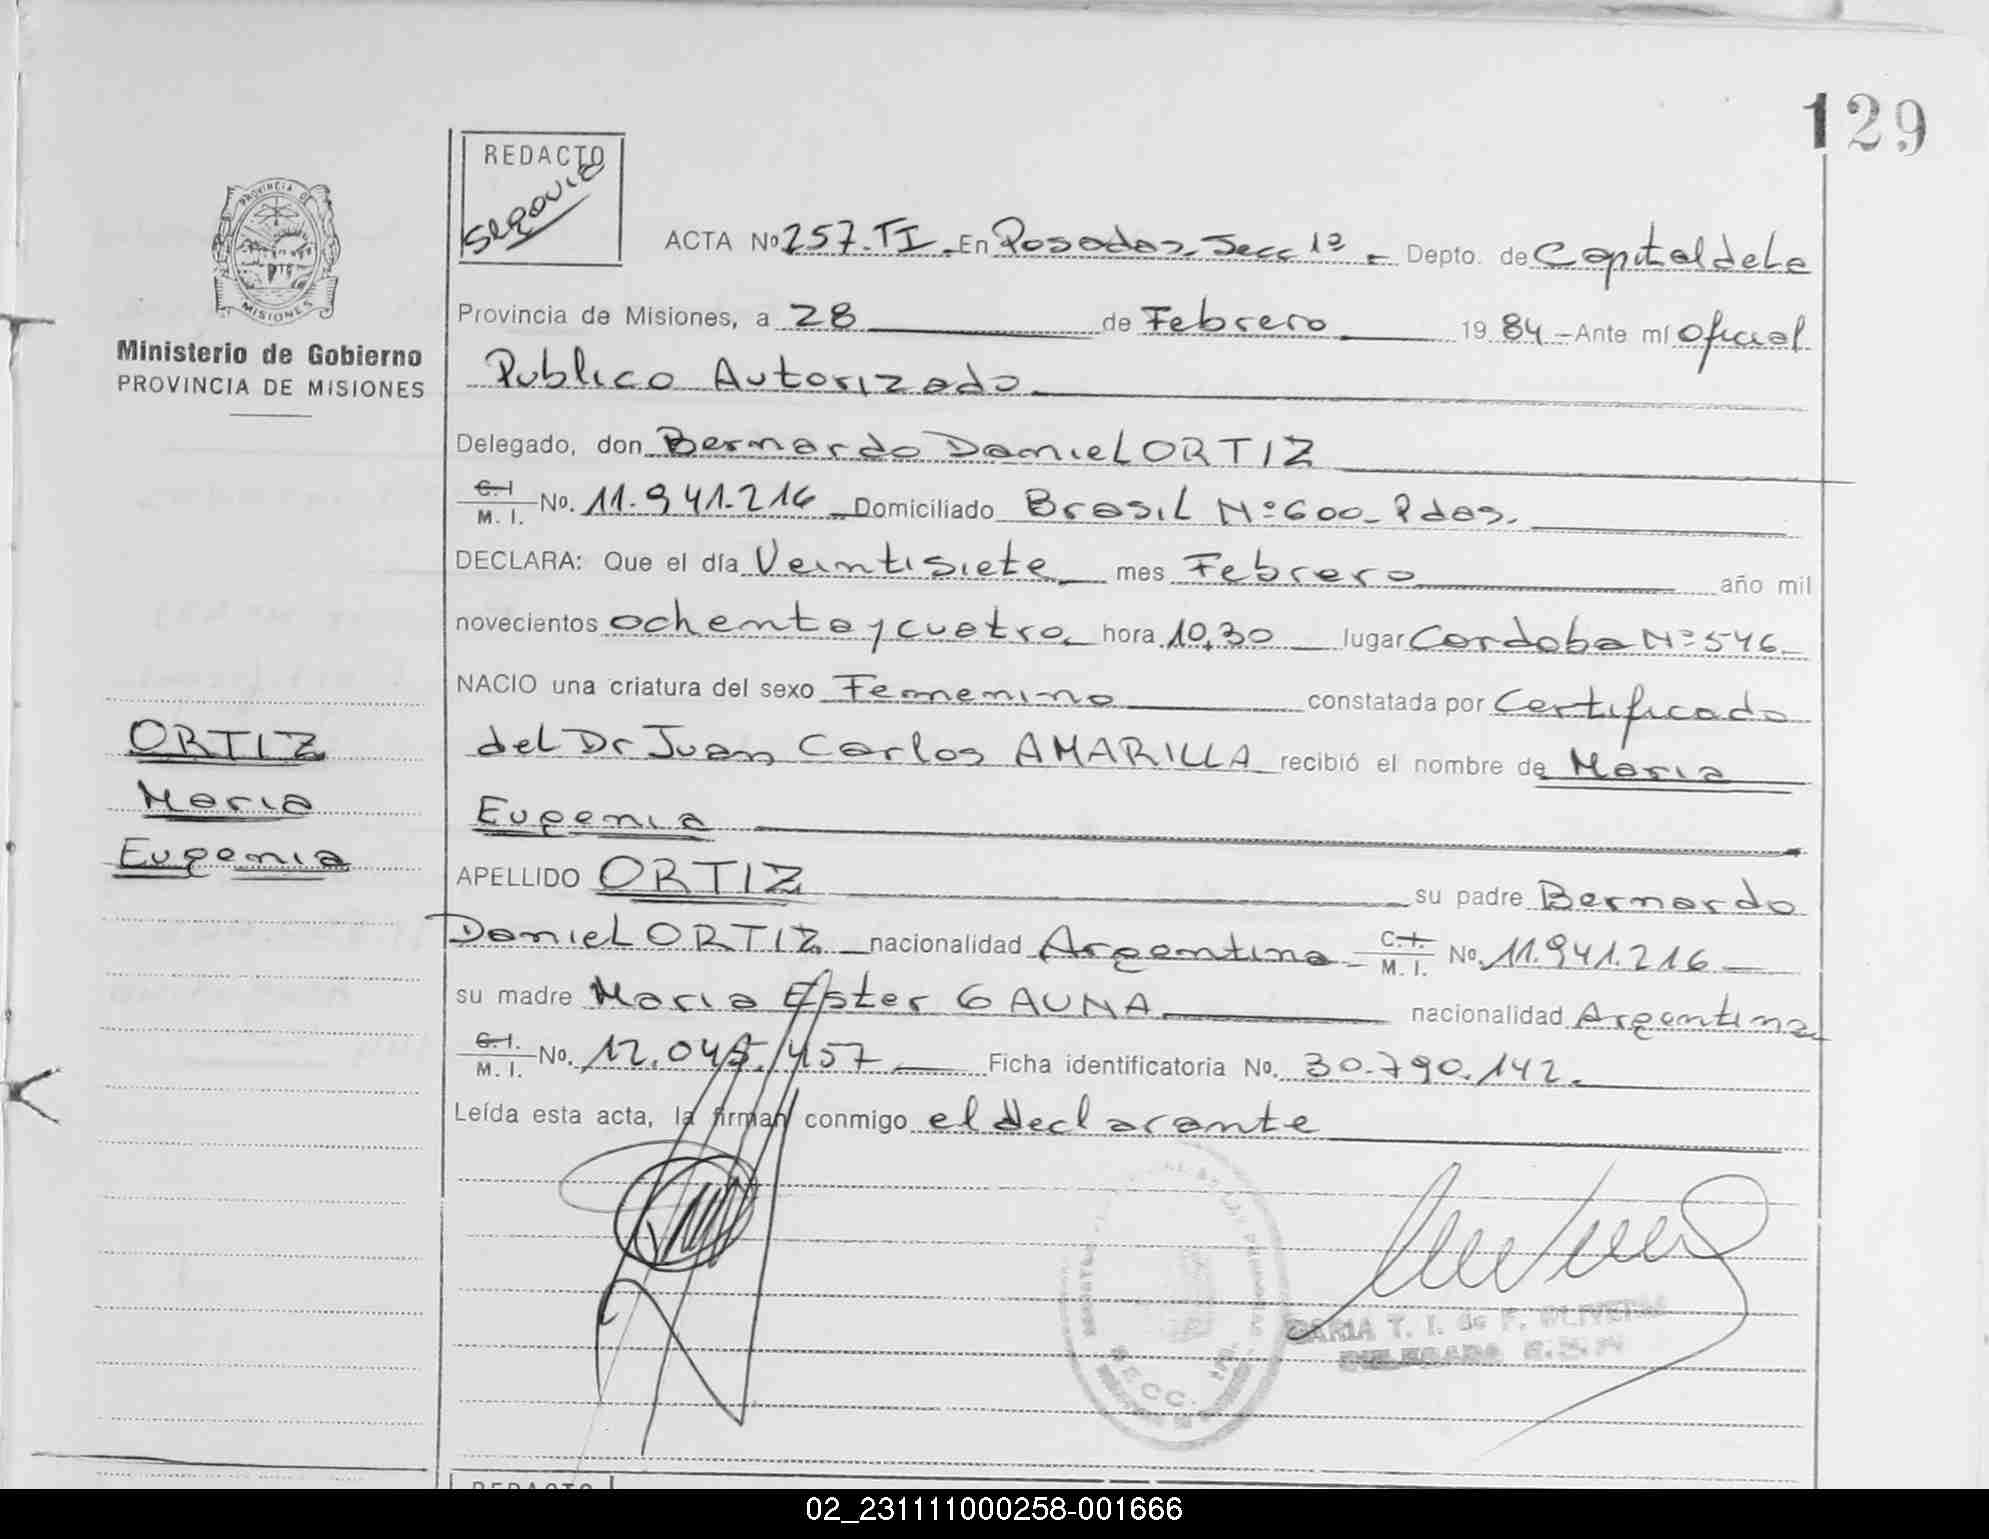 129
REDACTO
Segovia
PROVINCIA DE
MISIONES
Ministerio de Gobierno
PROVINCIA DE MISIONES
ACTA Nº 257.TI. En Posadas, Secc 1º - Depto. de Capital de La
Provincia de Misiones, a 28 de Febrero 1984.- Ante mí Oficial
Publico Autorizado
Delegado, don Bernardo Daniel ORTIZ
C.I. M. I. No. 11.941.216 Domiciliado Brasil Nº 600_ Pdas.
DECLARA: Que el día Veintisiete mes Febrero año mil
novecientos ochenta y cuatro hora 10,30 lugar Cordoba Nº 546_
NACIO una criatura del sexo Femenino constatada por Certificado
del Dr Juan Carlos AMARILLA recibió el nombre de Maria
Eugenia
APELLIDO ORTIZ su padre Bernardo
Daniel ORTIZ nacionalidad Argentina C.I. M. I. No. 11.941.216
su madre Maria Ester GAUNA nacionalidad Argentina
C.I. M. I. No. 12.045.457 Ficha identificatoria No. 30.790.142.
Leída esta acta, la firman conmigo el declarante
ORTIZ
Maria
Eugenia
SECC.
MARIA T. I. de F. OLIVEIRA
REDACTO
02_231111000258-001666